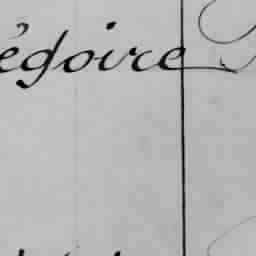 égoire